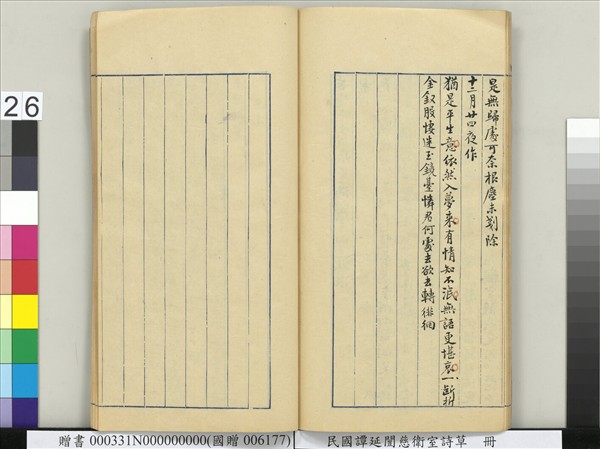 是無歸處可奈根塵未剗除
十二月廿四夜作
猶是平生意依然入夢來有情知不泯無語更堪哀斷折
金釵股悽迷玉鏡臺憐君何處去欲去轉徘徊
26
贈書 000331N000000000(國贈 006177)
民國譚延闓慈衛室詩草 冊